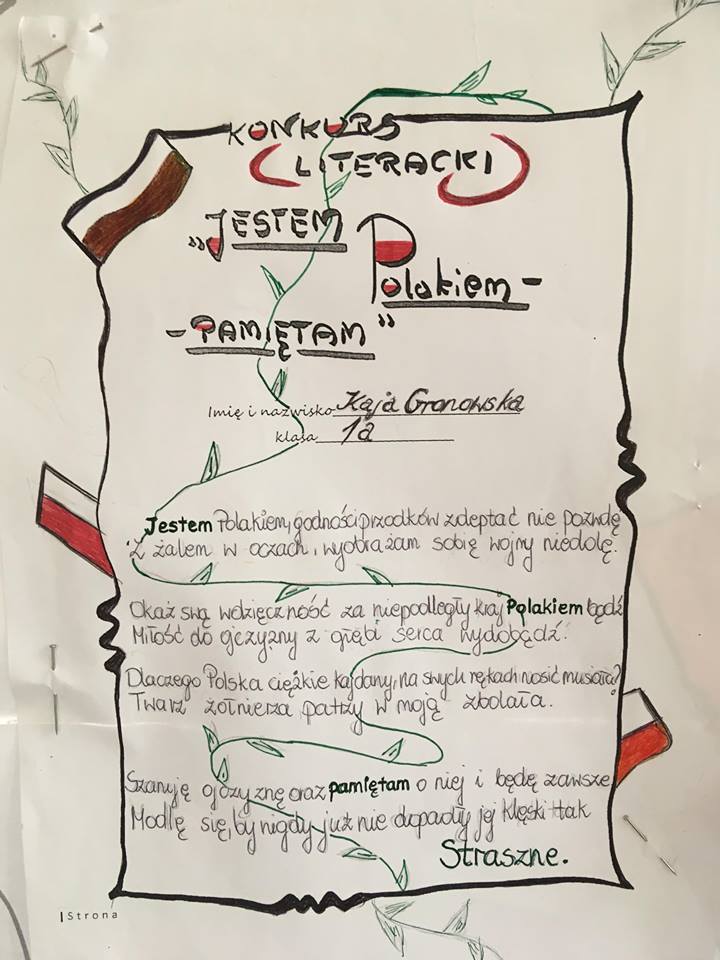 KONKURS
LITERACKI
„JESTEM
Polakiem –
– PAMIĘTAM”
Imię i nazwisko Kaja Gronowska
klasa 1a
Jestem Polakiem, godności przodków zdeptać nie pozwolę
Z żalem w oczach, wyobrażam sobię wojny niedolę.
Okaż swą wdzięczność za niepodległy kraj Polakiem bądź
Miłość do ojczyzny z głębi serca wydobądź.
Dlaczego Polska ciężkie kajdany, na swych rękach nosić musiała?
Twarz żołnierza patrzy w moją zbolała.
Szanuję ojczyznę oraz pamiętam o niej i będę zawsze
Modlę się, by nigdy już nie dopadły jej klęski tak
Straszne.
| Strona